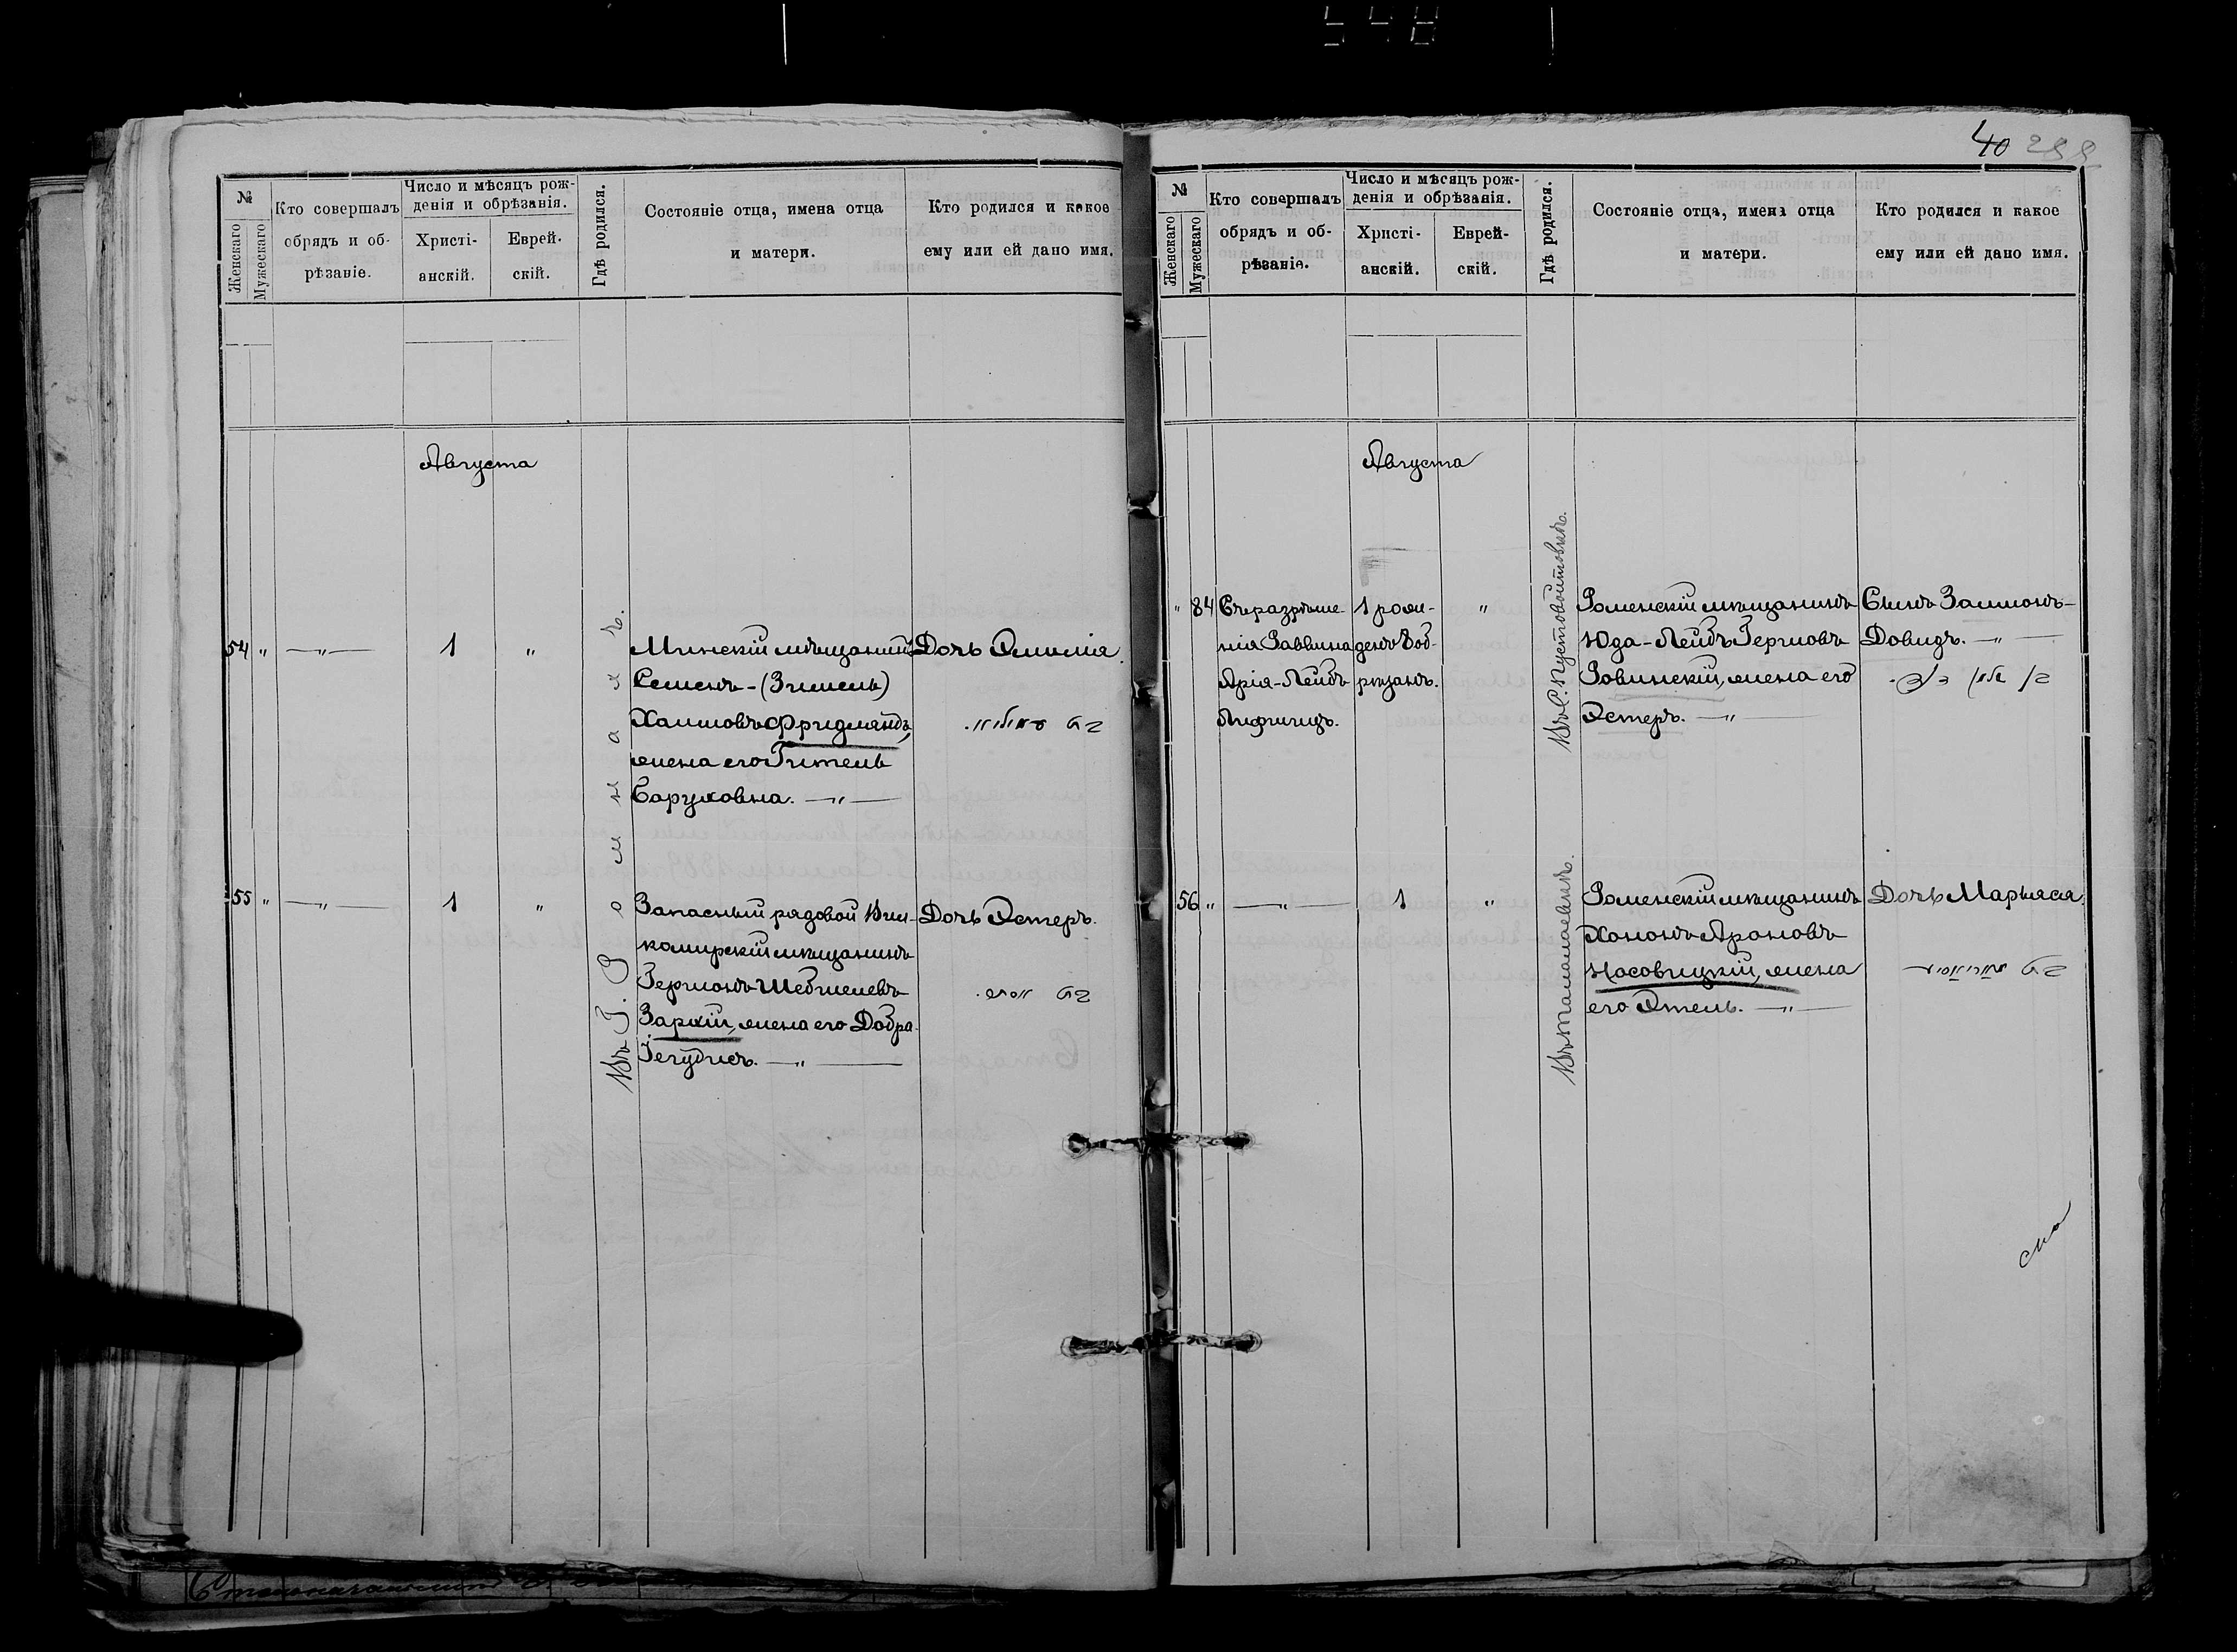 548
40 299
№
Женскаго
Мужескаго
Кто совершалъ
обрядъ и об-
рѣзаніе.
Число и мѣсяцъ рож-
денія и обрѣзанія.
Христі-
анскій.
Еврей-
скій.
Гдѣ родился.
Состояніе отца, имена отца
и матери.
Кто родился и какое
ему или ей дано имя.
Августа
Въ Г. Ромнахъ.
54 " —"— 1 "
Минскій мѣщанинъ
Семенъ-(Зимель)
Хаимовъ Фридмандъ,
жена его Гитель
Баруховна. —"—
Дочь Эмилія.
בת עמיליא.
55 " —"— 1 "
Запасный рядовой Вил-
комирскій мѣщанинъ
Гершонъ Шебшелевъ
Зархій, жена его Добра-
Іегудисъ. —"—
Дочь Эстеръ.
בת אסתר.
№
Женскаго
Мужескаго
Кто совершалъ
обрядъ и об-
рѣзаніе.
Число и мѣсяцъ рож-
денія и обрѣзанія.
Христі-
анскій.
Еврей-
скій.
Гдѣ родился.
Состояніе отца, имена отца
и матери.
Кто родился и какое
ему или ей дано имя.
Августа
" 84
Съ разрѣше-
нія Раввина
Арія-Лейбъ
Лифшицъ.
1 рож-
денъ 8 об-
рѣзанъ.
"
Въ С. Пустовойтовкѣ.
Роменскій мѣщанинъ
Юда-Лейбъ Гершовъ
Ровинскій, жена его
Эстеръ. —"—
Сынъ Залмонъ-
Довидъ. —"—
56 " —"— 1 "
Въ Талалаевкѣ.
Роменскій мѣщанинъ
Хононъ Ароновъ
Носовицкій, жена
его Этель. —"—
Дочь Марьяся.